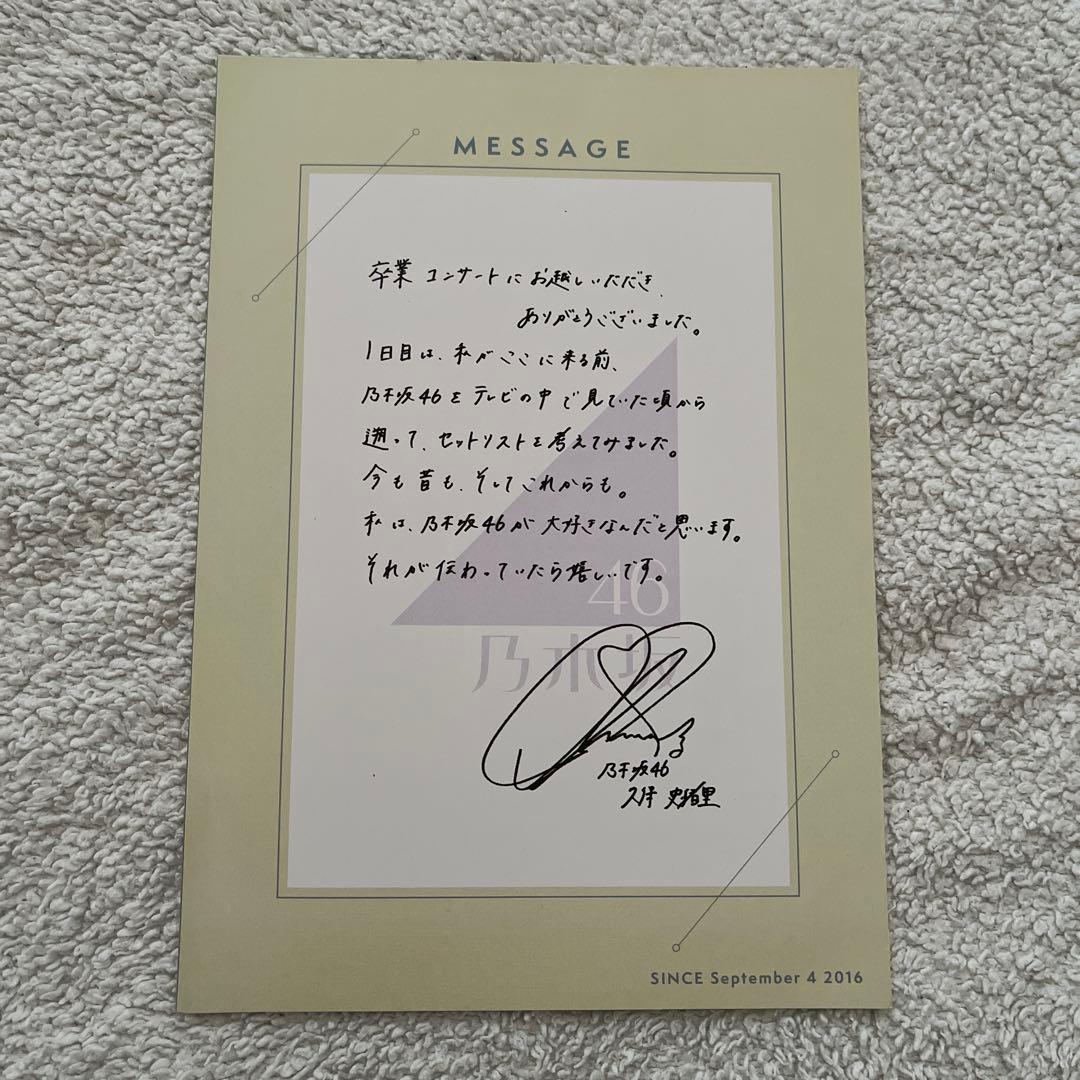 MESSAGE
卒業コンサートにお越しいただき、
ありがとうございました。
1日目は、私がここに来る前、
乃木坂46をテレビの中で見ていた頃から
遡って、セットリストを考えてみました。
今も昔も、そしてこれからも。
私は、乃木坂46が大好きなんだと思います。
それが伝わっていたら嬉しいです。
46
乃木坂
乃木坂46
久保 史緒里
SINCE September 4 2016